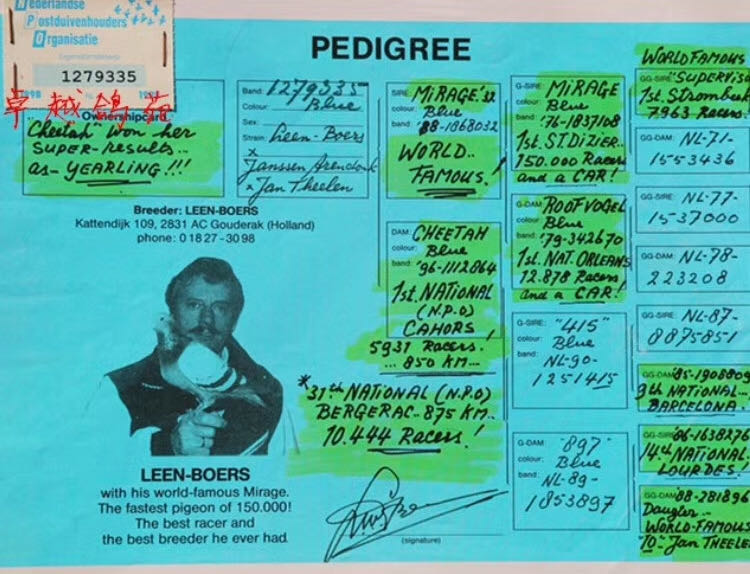 Nederlandse
Postduivenhouders
Organisatie
1279335
卓越鸽苑
Ownershipcard
"Cheetah" won her
SUPER-RESULTS..
as-YEARLING!!!
PEDIGREE
Band: 1279335
Colour: Blue
Sex:
Strain: Leen-Boers
x
Janssen Arendonk
x Jan Theelen
Breeder: LEEN-BOERS
Kattendijk 109, 2831 AC Gouderak (Holland)
phone: 01827-3098
LEEN-BOERS
with his world-famous Mirage.
The fastest pigeon of 150.000!
The best racer and
the best breeder he ever had.
SIRE: MIRAGE '32
colour: Blue
band: 88-1868032
WORLD..
FAMOUS!
DAM: CHEETAH
colour: Blue
band: '96-1112864
1st. NATIONAL
(N.P.O)
CAHORS
5931 Racers.
... 850 KM...
*31th NATIONAL (N.P.O)
BERGERAC-875 KM..
10.444 Racers!
(signature)
G-SIRE: MIRAGE
colour: Blue
band: '76-1837108
1st. ST DIZIER..
150.000 Racers
and a CAR!
G-DAM: ROOFVOGEL
colour: Blue
band: '79-342670
1st. NAT. ORLEANS
12.878 Racers
and a CAR!
G-SIRE: "415"
colour: Blue
band: NL-90-
1251415
G-DAM: "897"
colour: Blue
band: NL-89-
1853897
WORLD FAMOUS
GG-SIRE:
1st. Strombeek
7.963 Racers.
GG-DAM: NL-71-
1553436
GG-SIRE: NL-77-
1537000
GG-DAM: NL-78-
223208
GG-SIRE: NL-87-
8875851
GG-DAM: '85-1908809
9th NATIONAL..
BARCELONA.
GG-SIRE: '86-1638276
14th NATIONAL
LOURDES!
GG-DAM: 88-281896
Daugter..
WORLD-FAMOUS
"10"-Jan THEELEN